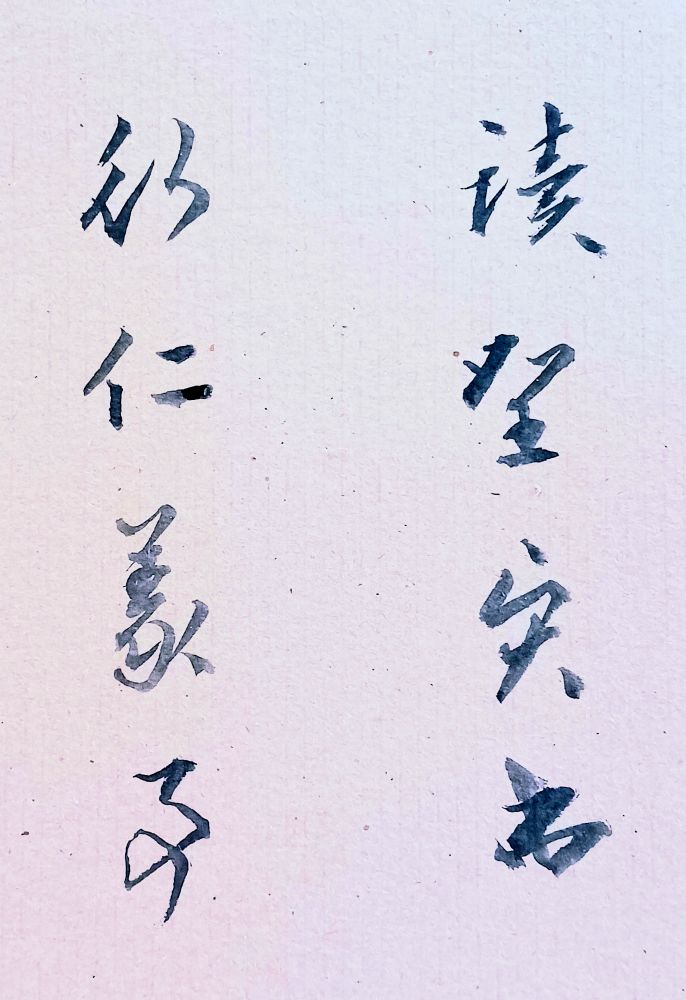 读圣贤书
行仁義事